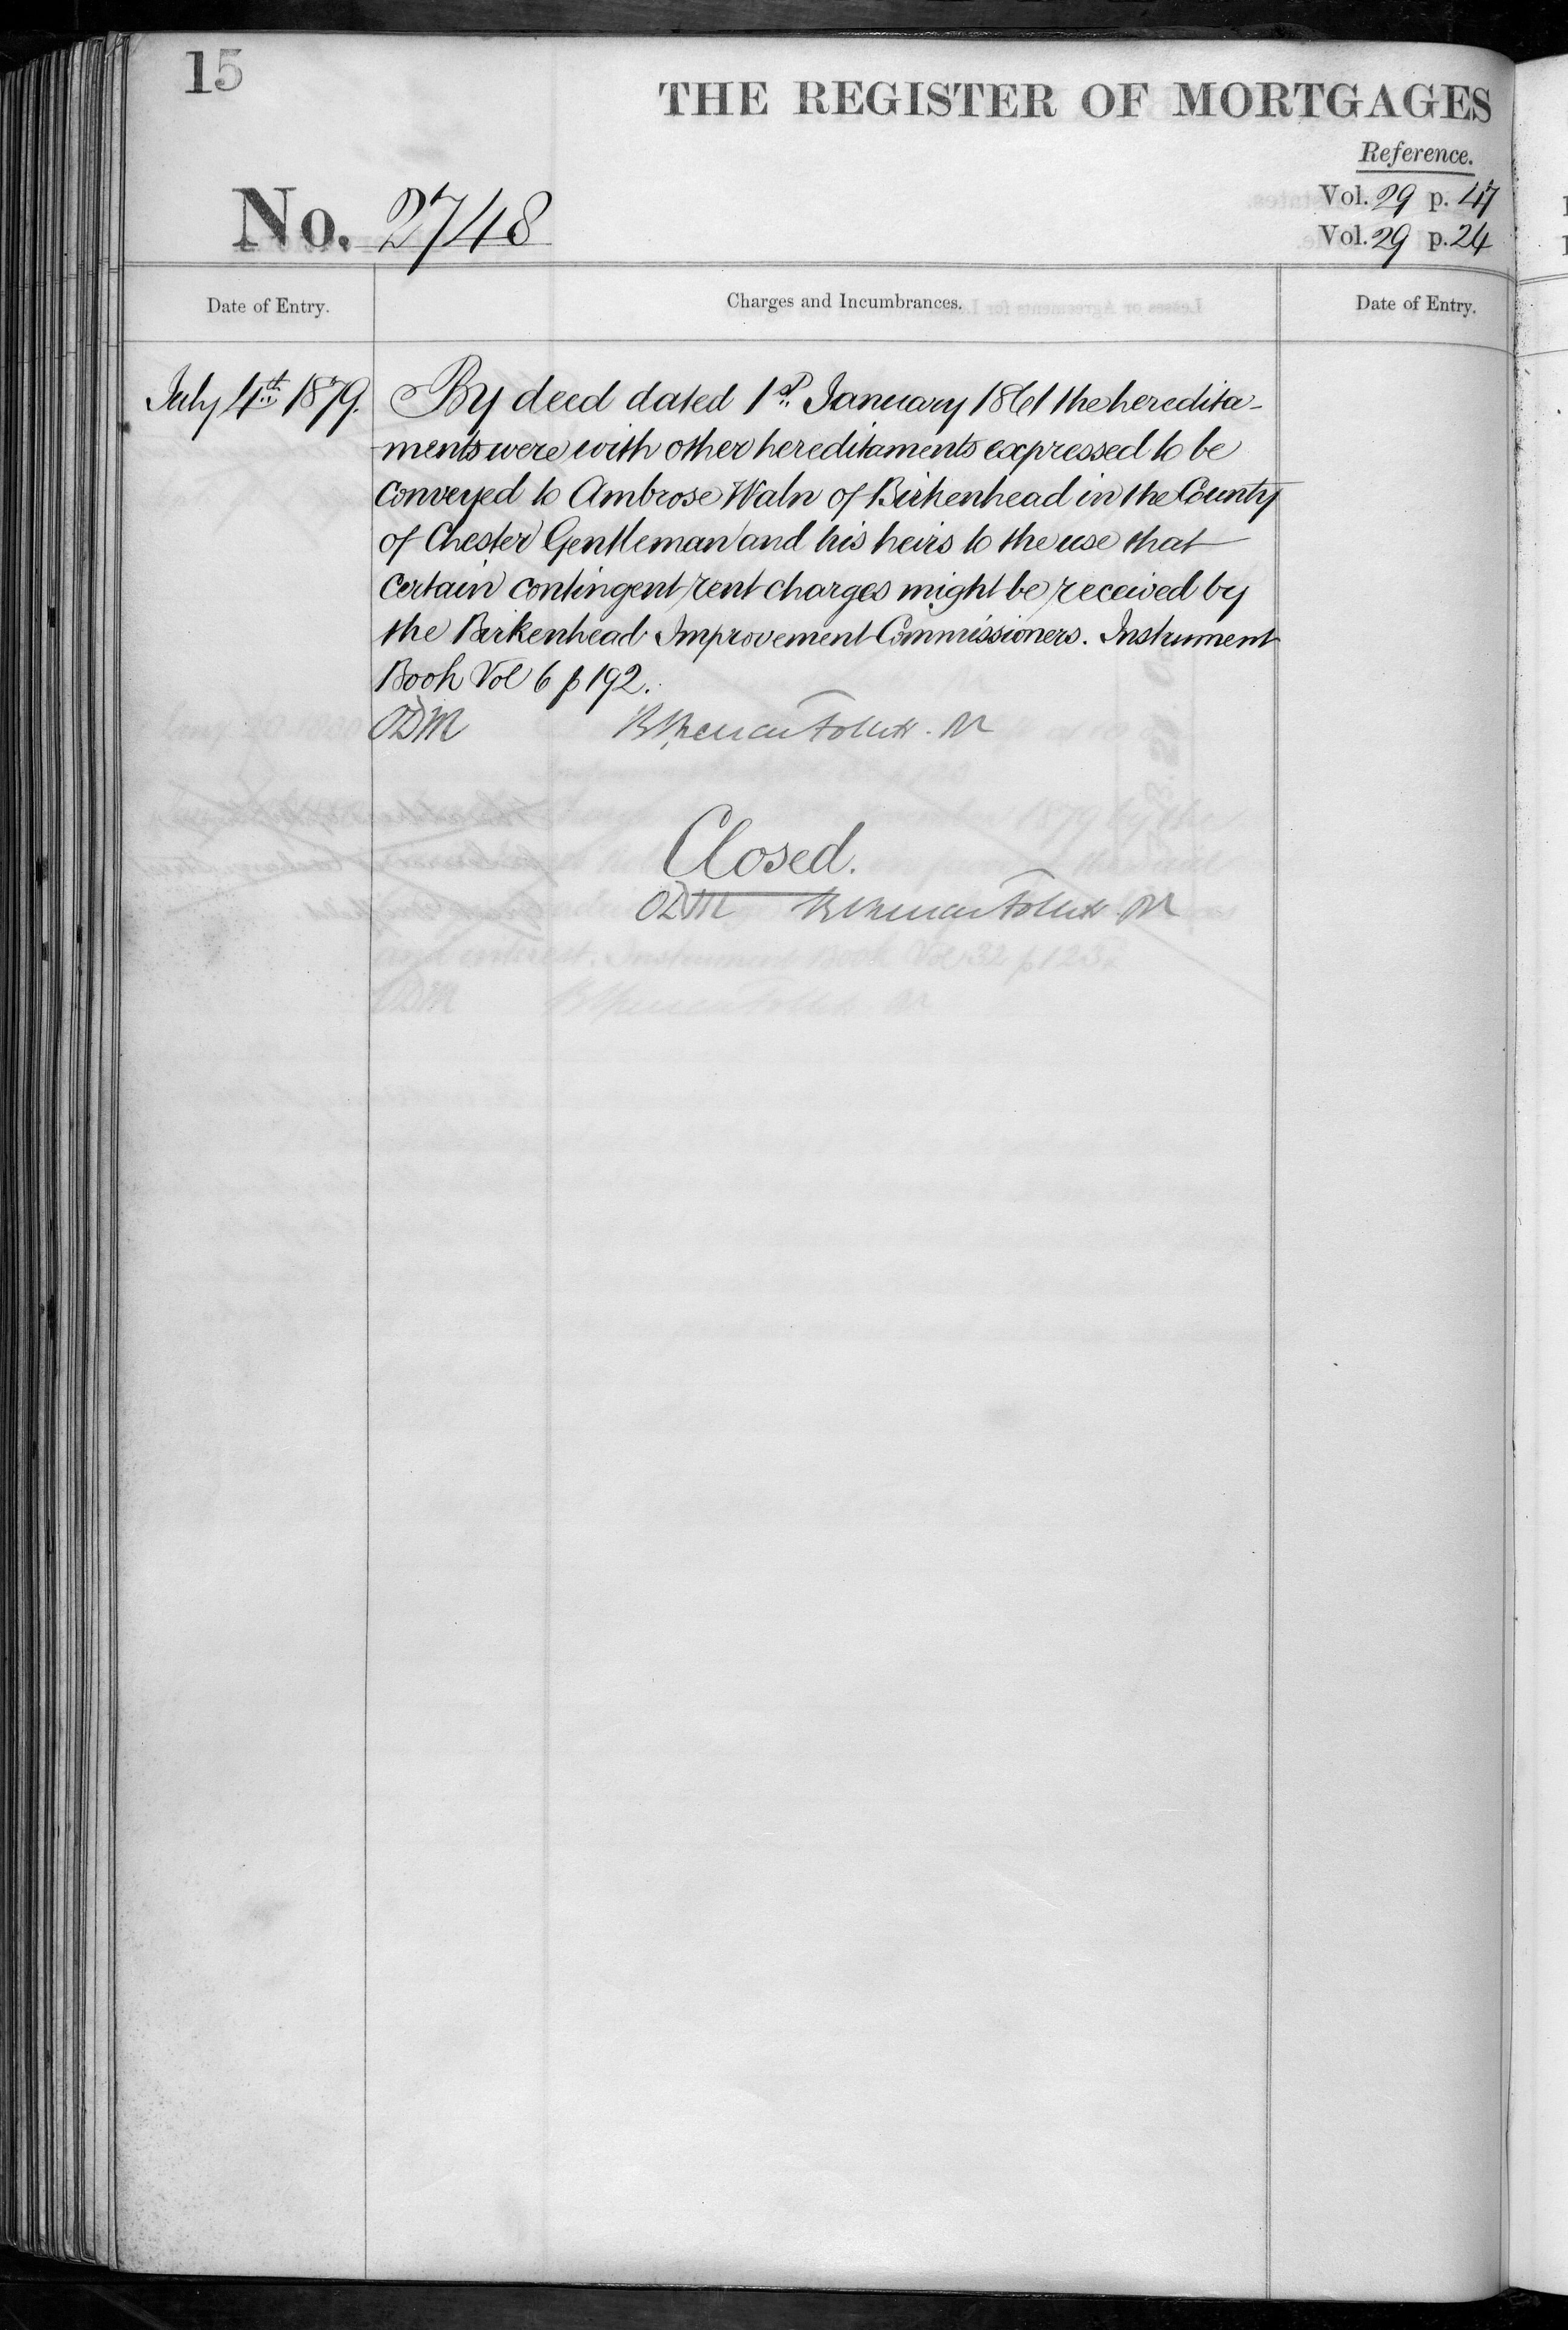 15
THE REGISTER OF MORTGAGES
Reference.
Vol. 29 p. 47
No. 2748
Vol. 29 p. 24
Date of Entry.
Charges and Incumbrances.
Date of Entry.
July 4th 1879.
By deed dated 1st January 1861 the heredita-
ments were with other hereditaments expressed to be
conveyed to Ambrose Waln of Birkenhead in the County
of Chester Gentleman and his heirs to the use that
certain contingent rent charges might be received by
the Birkenhead Improvement Commissioners. Instrument
Book Vol 6 p 192.
ODM
Closed.
ODM